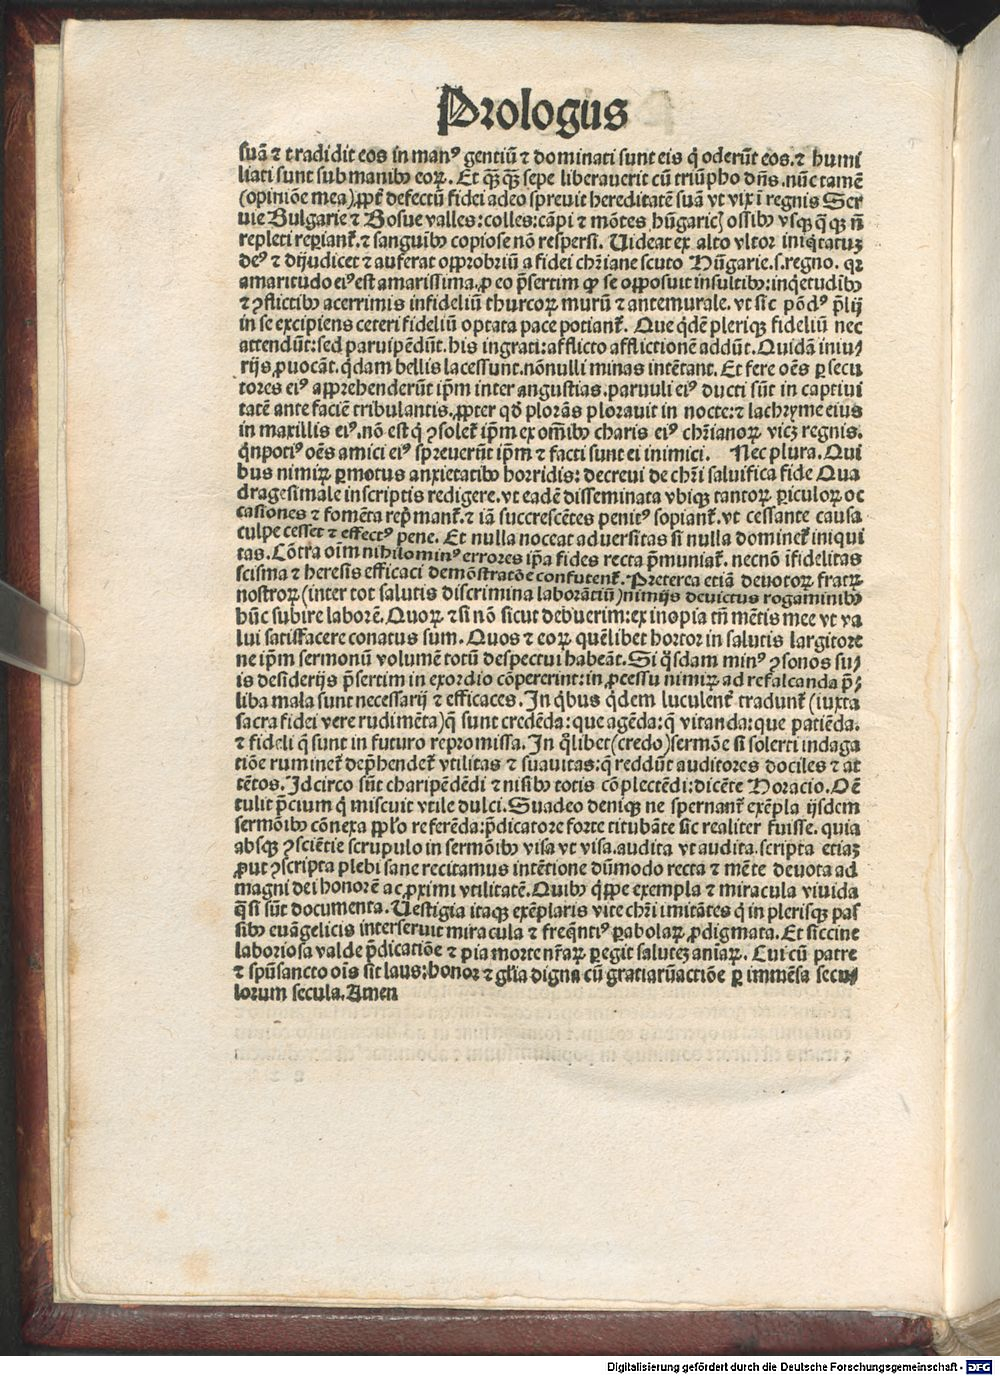 Prologus
suā ⁊ tradidit eos in manꝰ gentiū ⁊ dominati sunt eis q̇ oderūt eos.⁊ humi
liati sunt sub manibꝰ eoꝝ. Et q̄ꝙ q̄ꝙ sepe liberauerit cū triūpho dn̄s.nūc tamē
(opiniōe mea)ꝓpt̄ defectū fidei adeo spreuit hereditatē suā vt vix ī regnis Ser
uie Bulgarie ⁊ Bosue valles:colles:cāpi ⁊ mōtes hūgaricꝭ ossibꝰ vsqꝫ q̄qꝫ nō
repleti reꝑiant᷑.⁊ sanguībꝰ copiose nō respersi. Uideat ex alto vltor iniq̇tatuꝫ
deꝰ ⁊ dijudicet ⁊ auferat opprobriū a fidei chr̄iane scuto Hūgarie.s.regno. qꝛ
amaritudo eiꝰ est amarissima.ꝓ eo p̄sertim ꝙ se opposuit insultibꝰ:inq̇etudībꝰ
⁊ ꝯflictibꝰ acerrimis infideliū thurcoꝝ murū ⁊ antemurale. vt sic pōdꝰ p̄lij
in se excipiens ceteri fideliū optata pace potiant᷑. Que q̇dē pleriqꝫ fideliū nec
attendūt:sed paruipēdūt.his ingrati:afflicto afflictionē addūt.Quidā iniu⸗
rijs ꝓuocāt.q̇dam bellis lacessunt.nōnulli minas intētant. Et fere oēs ꝑsecu
tores eiꝰ apprehenderūt ip̄m inter angustias.paruuli eiꝰ ducti sūt in captiui
tatē ante faciē tribulantis.ꝓpter qd̄ plorās plorauit in nocte:⁊ lachryme eius
in maxillis eiꝰ.nō est q̇ ꝯsolet᷑ ip̄m ex om̄ibꝰ charis eiꝰ chr̄ianoꝝ vicꝫ regnis.
q̇npotiꝰ oēs amici eiꝰ spreuerūt ip̄m ⁊ facti sunt ei inimici. Nec plura.Qui
bus nimiꝝ ꝑmotus anxietatibꝰ horridis: decreui de chr̄i saluifica fide Qua
dragesimale in scriptis redigere.vt eadē disseminata vbiqꝫ tantoꝝ ꝑiculoꝝ oc
casiones ⁊ fomēta rep̄mant᷑.⁊ iā succrescētes penitꝰ sopiant᷑.vt cessante causa
culpe cesset ⁊ effectꝰ pene. Et nulla noceat aduersitas si nulla dominet᷑ iniqui
tas. Cōtra oīm nihilominꝰ errores ip̄a fides recta p̄muniat᷑. necnō īfidelitas
scisma ⁊ heresis efficaci demōstratōe confutent᷑. Preterea etiā deuotoꝝ fratꝝ
nostroꝝ (inter tot salutis discrimina laborātiū)nimijs deuictus rogaminibꝰ
hūc subire laborē.Quoꝝ ⁊ si nō sicut debuerim:ex inopia tn̄ mētis mee vt va
lui satisfacere conatus sum. Quos ⁊ eoꝝ quēlibet hortor in salutis largitore
ne ip̄m sermonū volumē totū despectui habeāt.Si q̇sdam minꝰ ꝯsonos su⸗
is desiderijs p̄sertim in exordio cōpererint:in ꝓcessu nimiꝝ ad refalcanda p̄⸗
liba mala sunt necessarij ⁊ efficaces.In q̇bus q̇dem luculent᷑ tradunt᷑ (iuxta
sacra fidei vere rudimēta)q̄ sunt credēda:que agēda:q̄ vitanda:que patiēda.
⁊ fideli q̄ sunt in futuro repromissa.In q̇libet(credo)sermōe si solerti indaga
tiōe ruminet᷑ dep̄hendet᷑ vtilitas ⁊ suauitas:q̄ reddūt auditores dociles ⁊ at
tētos.Idcirco sūt charipēdēdi ⁊ nisibꝰ totis cōplectēdi:dicēte Horacio.Oē
tulit p̄cium q̇ miscuit vtile dulci.Suadeo deniqꝫ ne spernant᷑ exēpla ijsdem
sermōibꝰ cōnexa ꝓpl'o referēda:p̄dicatore forte titubāte sic realiter fuisse. quia
absqꝫ ꝯsciētie scrupulo in sermōibꝰ visa vt visa.audita vt audita.scripta etiaꝫ
ꝓut ꝯscripta plebi sane recitamus intētione dūmodo recta ⁊ mēte deuota ad
magni dei honorē ac ꝓximi vtilitatē.Quibꝰ q̇ppe exempla ⁊ miracula viuida
q̄si sūt documenta.Uestigia itaqꝫ exēplaris vite chr̄i imitātes q̇ in plerisqꝫ pas
sibꝰ euāgelicis interseruit miracula ⁊ freq̄ntiꝰ ꝑabolaꝝ ꝓdigmata. Et siccine
laboriosa valde p̄dicatiōe ⁊ pia morte nr̄aꝝ ꝑegit saluteꝫ aniaꝝ. Cui cū patre
⁊ spūsancto oīs sit laus:honor ⁊ gl'ia digna cū gratiarūactiōe ꝑ immēsa secu⸗
lorum secula.Amen
Digitalisierung gefördert durch die Deutsche Forschungsgemeinschaft - DFG